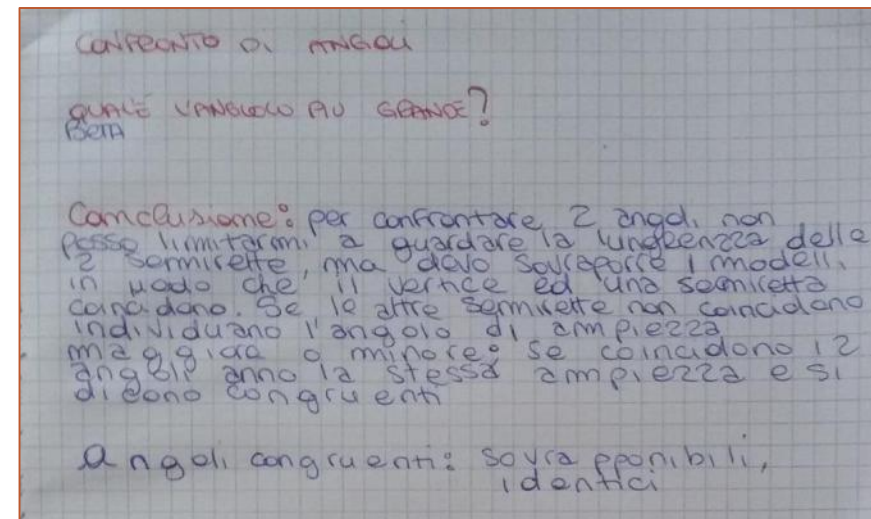 CONFRONTO DI ANGOLI
QUALE L'ANGLOLO PIU GRANDE?
BETA
Conclusione: per confrontare 2 angoli non
posso limitarmi a guardare la lungeenzza delle
2 sermirette, ma devo sovrapporre i modelli,
in modo che il vertice ed una semiretta
coincidano. Se le altre sermirette non coincidono
individuano l'angolo di ampiezza
maggiore o minore: se coincidono i 2
angoli anno la stessa ampiezza e si
dicono congruenti
Angoli congruenti: sovrapponibili,
identici